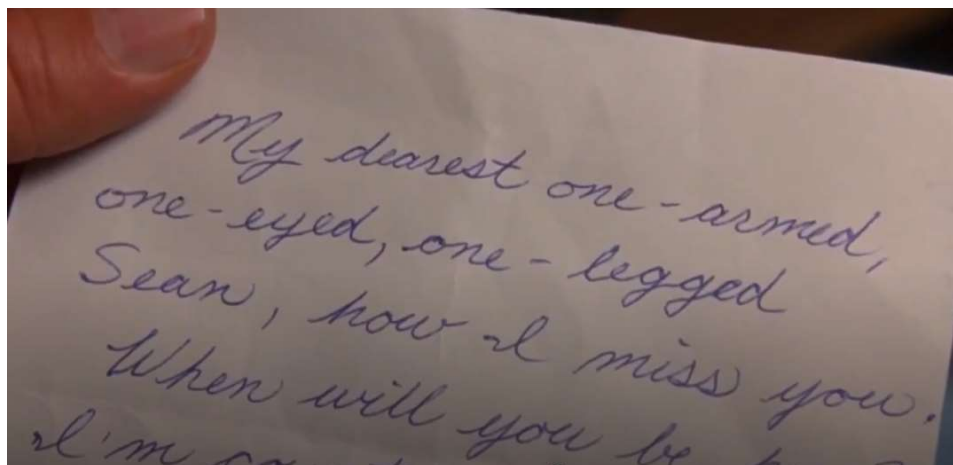 My dearest one-armed,
one-eyed, one-legged
Sean, how I miss you.
When will you be
I'm